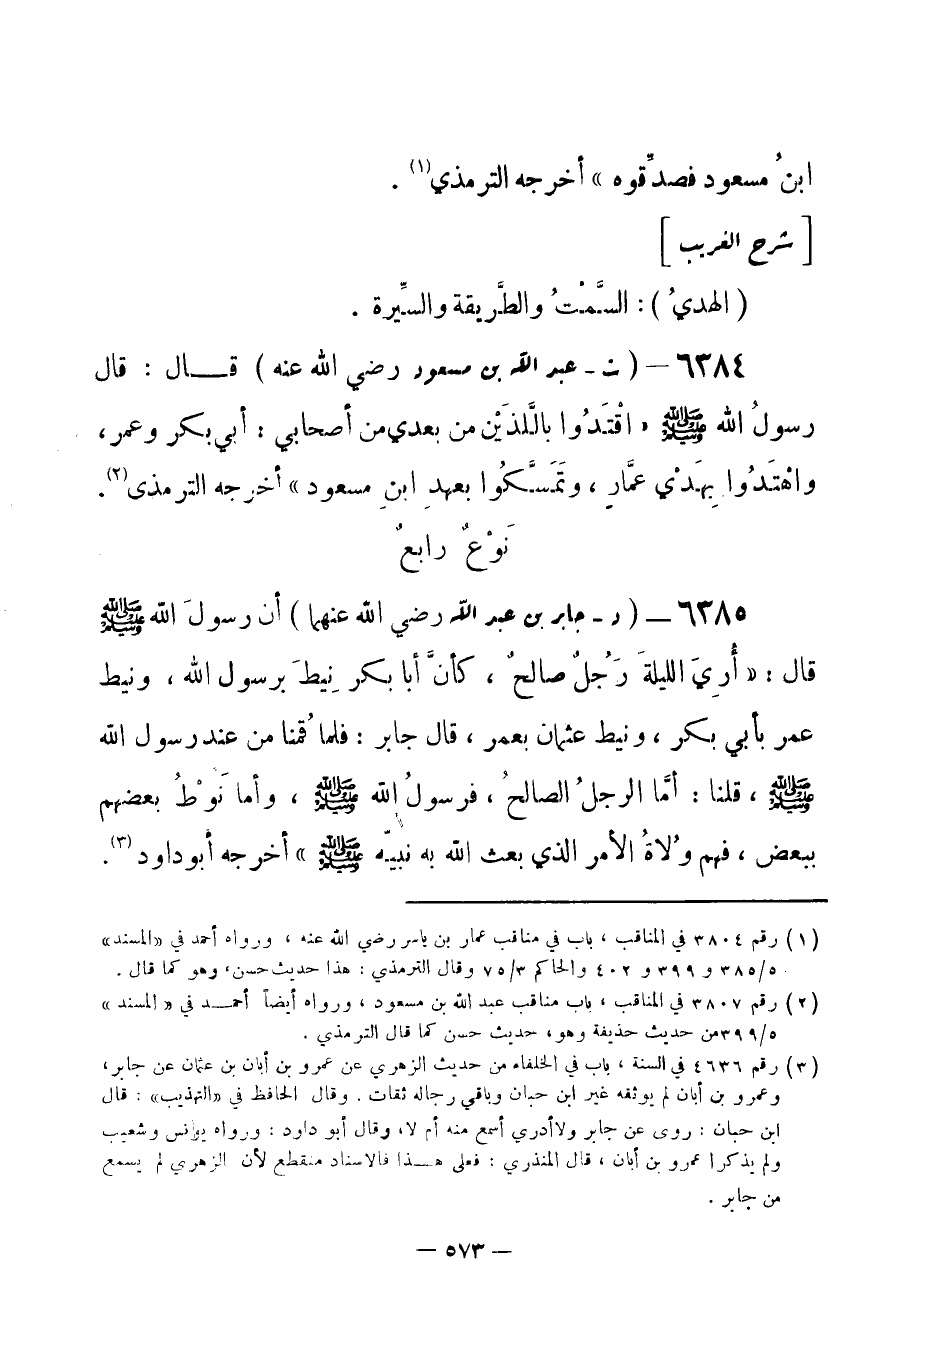 ابنُ مسعود فصدِّقوه » أخرجه الترمذي(١) .
[ شرح الغريب ]
( الهديُ ) : السَّمْتُ والطَّريقة والسِّيرة .
٦٣٨٤ – ( ت - عبد الله بن مسعود رضي الله عنه ) قـــال : قال
رسولُ الله ﷺ « اقْتَدُوا باللَّذَيْن من بعدي من أصحابي : أبي بكر وعمر ،
واهْتَدُوا بِهَدْي عمَّارٍ ، وتَمَسَّكُوا بعهدِ ابنِ مسعود » أخرجه الترمذي(٢).
نَوْعٌ رابعٌ
٦٣٨٥ – ( د - جابر بن عبد الله رضي الله عنهما ) أن رسولَ الله ﷺ
قال : « أُرِيَ الليلةَ رَجُلٌ صالحٌ ، كأنَّ أبا بكر نِيطَ برسول الله ، ونيط
عمر بأبي بكر ، ونيط عثمان بعمر ، قال جابر : فلما قُمنا من عند رسول الله
ﷺ ، قلنا : أمَّا الرجلُ الصالحُ ، فرسولُ الله ﷺ ، وأما نَوْطُ بعضهم
ببعض ، فهم وُلاةُ الأمر الذي بعث الله به نبيّه ﷺ » أخرجه أبو داود(٣).
(١) رقم ٣٨٠٤ في المناقب ، باب في مناقب عمار بن ياسر رضي الله عنه ، ورواه أحمد في «المسند»
٣٨٥/٥ و ٣٩٩ و ٤٠٢ والحاكم ٧٥/٣ وقال الترمذي : هذا حديث حسن، وهو كما قال .
(٢) رقم ٣٨٠٧ في المناقب ، باب مناقب عبد الله بن مسعود ، ورواه أيضاً أحمـــد في « المسند »
٣٩٩/٥ من حديث حذيفة وهو، حديث حسن كما قال الترمذي .
(٣) رقم ٤٦٣٦ في السنة ، باب في الخلفاء من حديث الزهري عن عمرو بن أبان بن عثمان عن جابر،
وعمرو بن أبان لم يوثقه غير ابن حبان وباقي رجاله ثقات . وقال الحافظ في «التهذيب» : قال
ابن حبان : روى عن جابر ولا أدري أسمع منه أم لا، وقال أبو داود : ورواه يونس وشعيب
ولم يذكرا عمرو بن أبان ، قال المنذري : فعلى هـــذا فالاسناد منقطع لأن الزهري لم يسمع
من جابر .
– ٥٧٣ –